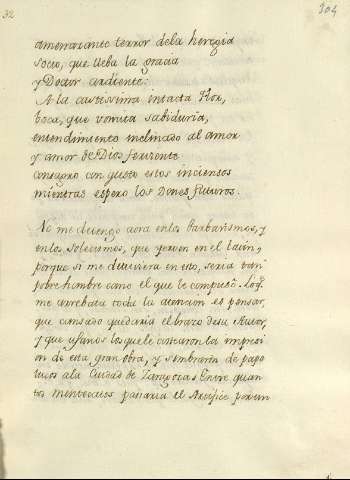 32
104
amenazante terror dela heregia
socio, que lleba la gracia
y Doctor ardiente.
A la castissima intacta Flor,
boca, que vomita sabiduria,
entendimiento inclinado al amor
y amor de Dios ferviente
consagro con gusto estos inciensos
mientras espero los Dones futuros.
No me detengo aora enlos Barbarismos, y
enlos solecismos, que yerven en el latin,
porque si me detuviera en esto, seria tan
pobre hombre como el que le compuso. Lo q.e
me arrebata toda la atencion es pensar,
que cansado quedaria el brazo desu Autor,
y que ufanos los que le costearon la impresi
on de esta gran obra, y sembraron de pape
lucos ala Ciudad de Zaragoza. Entre quan
tos mentecatos pasaria el Artifice por un